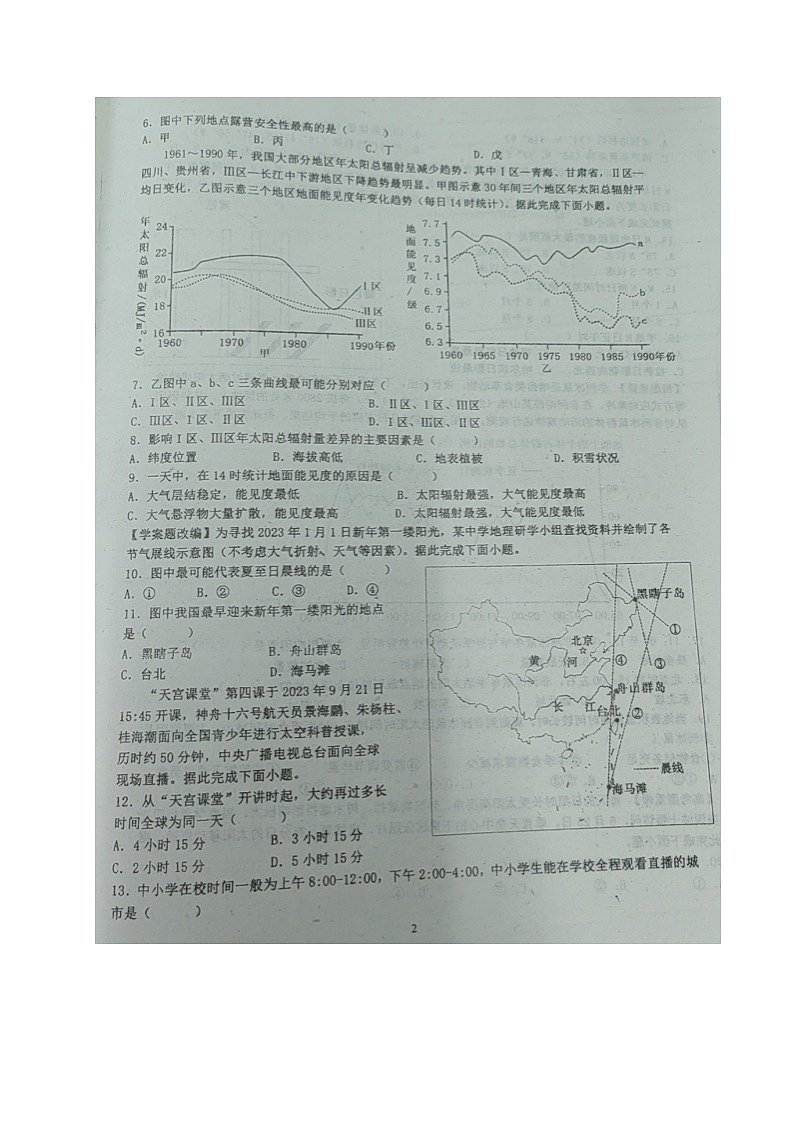 6．图中下列地点露营安全性最高的是（　　）
A．甲　　B．丙　　C．丁　　D．戊
1961～1990 年，我国大部分地区年太阳总辐射呈减少趋势。其中Ⅰ区—青海、甘肃省，Ⅱ区—
四川、贵州省，Ⅲ区—长江中下游地区下降趋势最明显。甲图示意 30 年间三个地区年太阳总辐射平
均日变化，乙图示意三个地区地面能见度年变化趋势（每日 14 时统计）。据此完成下面小题。
年太阳总辐射/(MJ/m²·d)
24
22
20
18
16
1960　1970　1980　1990年份
Ⅰ区
Ⅱ区
Ⅲ区
甲
地面能见度/级
7.7
7.5
7.3
7.1
6.9
6.7
6.5
6.3
1960 1965 1970 1975 1980 1985 1990年份
a
b
c
乙
7．乙图中 a、b、c 三条曲线最可能分别对应（　　）
A．Ⅰ区、Ⅱ区、Ⅲ区　　B．Ⅱ区、Ⅰ区、Ⅲ区
C．Ⅲ区、Ⅰ区、Ⅱ区　　D．Ⅰ区、Ⅲ区、Ⅱ区
8．影响Ⅰ区、Ⅲ区年太阳总辐射量差异的主要因素是（　　）
A．纬度位置　　B．海拔高低　　C．地表植被　　D．积雪状况
9．一天中，在 14 时统计地面能见度的原因是（　　）
A．大气层结稳定，能见度最低　　B．太阳辐射最强，大气能见度最高
C．大气悬浮物大量扩散，能见度最高　　D．太阳辐射最强，大气能见度最低
【学案题改编】为寻找 2023 年 1 月 1 日新年第一缕阳光，某中学地理研学小组查找资料并绘制了各
节气晨线示意图（不考虑大气折射、天气等因素）。据此完成下面小题。
10．图中最可能代表夏至日晨线的是（　　）
A．①　　B．②　　C．③　　D．④
11．图中我国最早迎来新年第一缕阳光的地点
是（　　）
A．黑瞎子岛　　B．舟山群岛
C．台北　　D．海马滩
黑瞎子岛
①
北京
黄　河
④
③
舟山群岛
长　江
台北
②
晨线
海马滩
“天宫课堂”第四课于 2023 年 9 月 21 日
15:45 开课，神舟十六号航天员景海鹏、朱杨柱、
桂海潮面向全国青少年进行太空科普授课，
历时约 50 分钟，中央广播电视总台面向全球
现场直播。据此完成下面小题。
12．从“天宫课堂”开讲时起，大约再过多长
时间全球为同一天（　　）
A．4 小时 15 分　　B．3 小时 15 分
C．2 小时 15 分　　D．5 小时 15 分
13．中小学在校时间一般为上午 8:00-12:00，下午 2:00-4:00，中小学生能在学校全程观看直播的城
市是（　　）
2